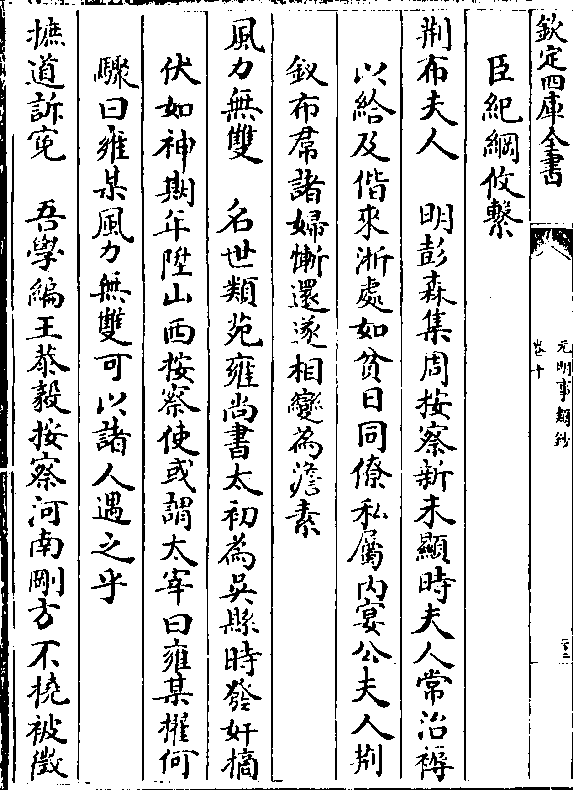 欽定四庫全書
元明事類鈔
卷十
臣紀綱攸繫
荆布夫人　明彭森集周按察新未顯時夫人常治褥
以給及偕來浙處如貧日同僚私屬内宴公夫人荆
釵布帬諸婦慚還遂相變為澹素
風力無雙　名世類苑雍尚書太初為吳縣時發奸摘
伏如神期年陞山西按察使或謂太宰曰雍某擢何
驟曰雍某風力無雙可以諸人遇之乎
摭道訴寃　吾學編王恭毅按察河南剛方不撓被徵